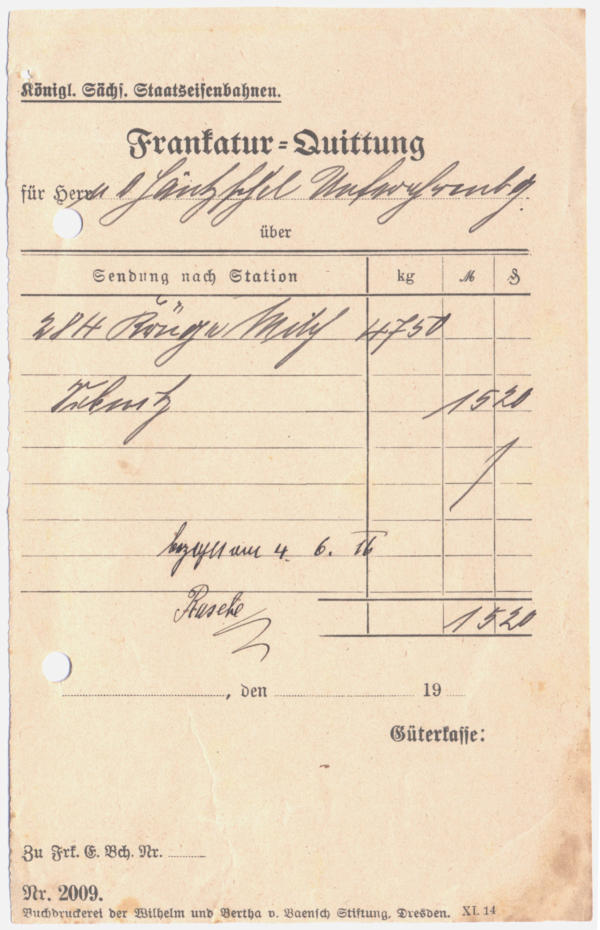 Königl. Sächs. Staatseisenbahnen.
Frankatur-Quittung
für Herrn O Häntzschel
über
Sendung nach Station kg M ₰
284 Krüge Milch 4750
15 20
bezahlt am 4. 6. 16
Rasche
15 20
, den 19
Güterkasse:
Zu Frk. E. Bch. Nr.
Nr. 2009.
Buchdruckerei der Wilhelm und Bertha v. Baensch Stiftung, Dresden. XI. 14